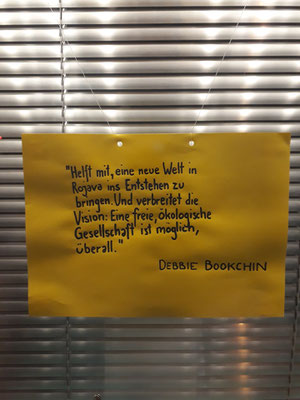 "Helft mit, eine neue Welt in
Rojava ins Entstehen zu
bringen. Und verbreitet die
Vision: Eine freie, ökologische
Gesellschaft ist möglich,
überall."
DEBBIE BOOKCHIN